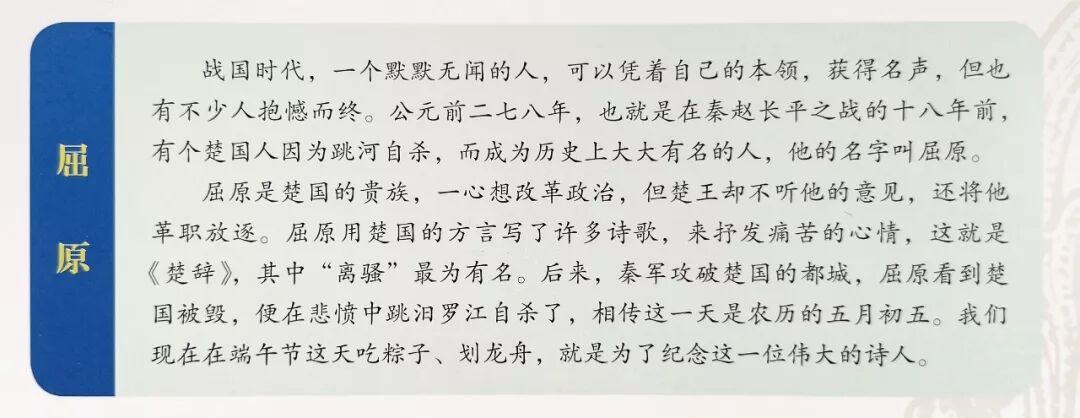 屈原
战国时代，一个默默无闻的人，可以凭着自己的本领，获得名声，但也
有不少人抱憾而终。公元前二七八年，也就是在秦赵长平之战的十八年前，
有个楚国人因为跳河自杀，而成为历史上大大有名的人，他的名字叫屈原。
屈原是楚国的贵族，一心想改革政治，但楚王却不听他的意见，还将他
革职放逐。屈原用楚国的方言写了许多诗歌，来抒发痛苦的心情，这就是
《楚辞》，其中“离骚”最为有名。后来，秦军攻破楚国的都城，屈原看到楚
国被毁，便在悲愤中跳汨罗江自杀了，相传这一天是农历的五月初五。我们
现在在端午节这天吃粽子、划龙舟，就是为了纪念这一位伟大的诗人。